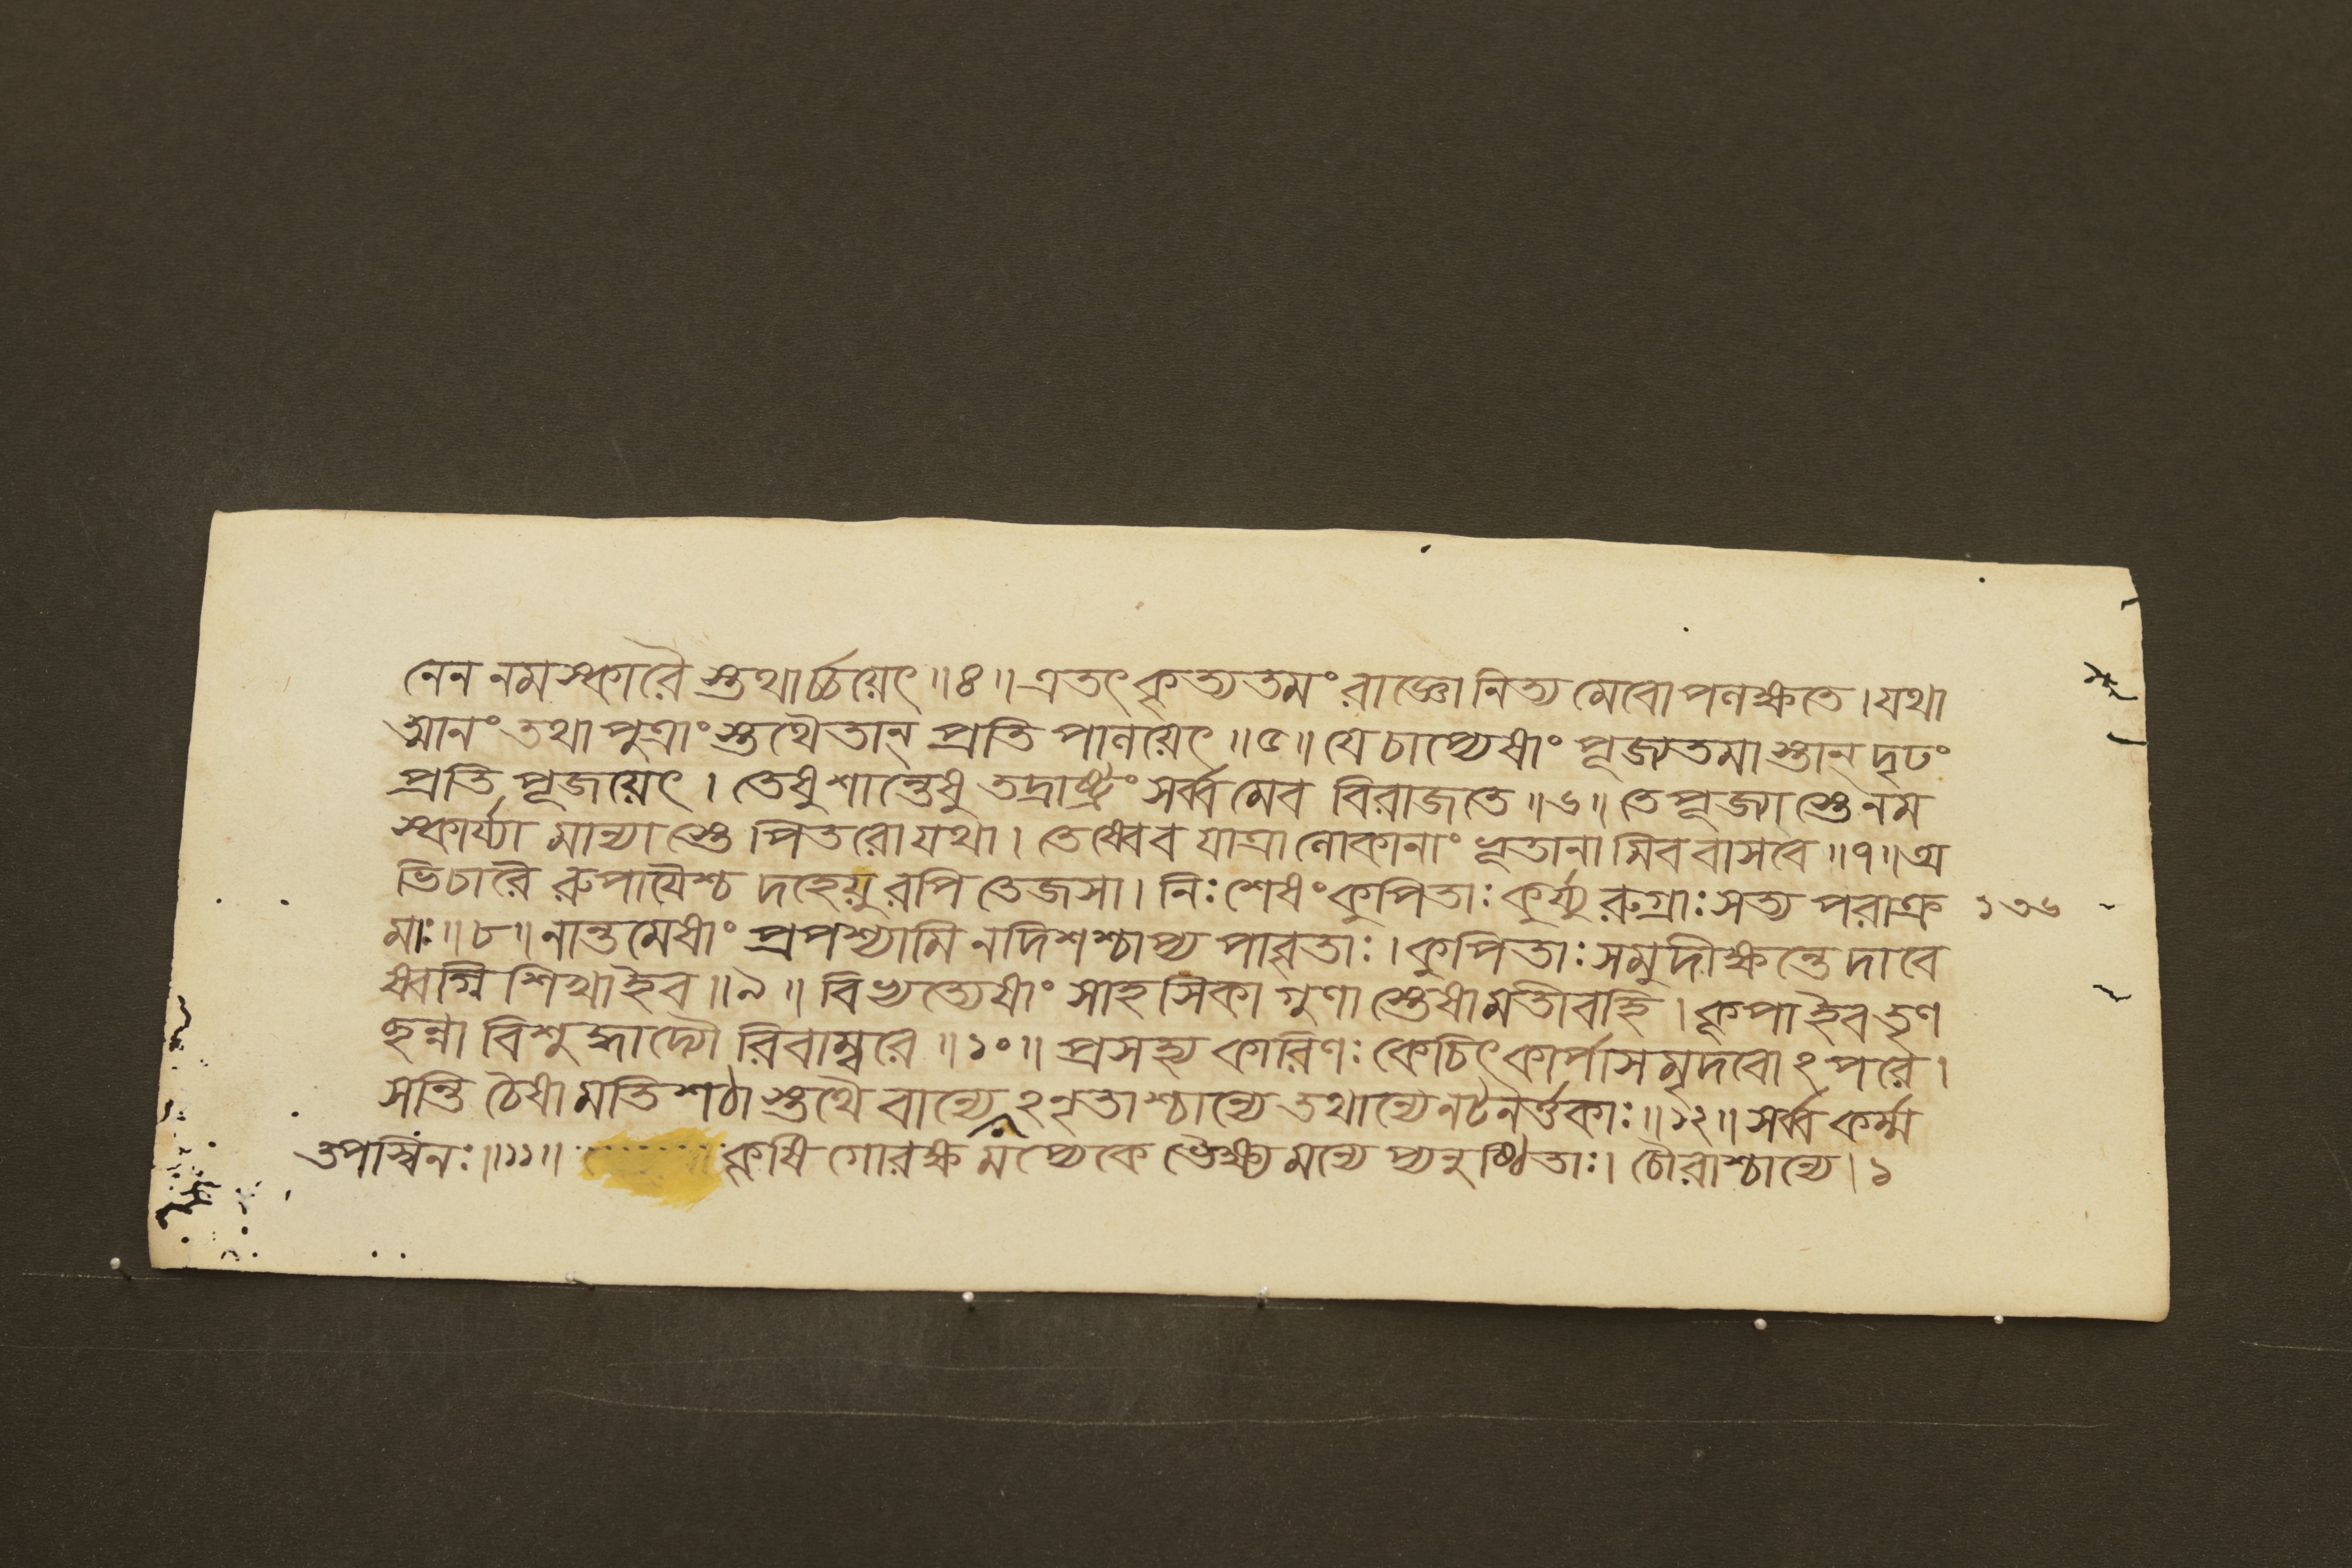 নেন নমস্কারৈ স্তথার্চ্চয়েৎ ॥৪॥ এতৎ কৃত্যতমং রাজ্ঞো নিত্য মেবোপলক্ষতে । যথা
ত্মানং তথা পুত্রাং স্তথৈতান্ প্রতি পালয়েৎ ॥৫॥ যে চাপ্যেষাং পূজ্যতমা স্তান্ দৃঢং
প্রতি পূজয়েৎ । তেষু শান্তেষু তদ্রাষ্ট্রং সর্ব্ব মেব বিরাজতে ॥৬॥ তে পূজ্যা স্তে নম
স্কার্য্যা মান্যা স্তে পিতরো যথা । তেষ্বেব যাত্রা লোকানাং ভূতানা মিব বাসবে ॥৭॥ অ
ভিচারৈ রুপায়ৈশ্চ দহেয়ু রপি তেজসা । নিঃ শেষং কুপিতাঃ কুর্য্যু রুগ্রাঃ সত্য পরাক্র ১৩৬
মাঃ ॥৮॥ নান্ত মেষাং প্রপশ্যামি ন দিশশ্চাপ্য পাবৃতাঃ । কুপিতাঃ সমুদীক্ষন্তে দাবে
ষ্বগ্নি শিখা ইব ॥৯॥ বিভ্যত্যেষাং সাহসিকা গুণা স্তেষা মতীবহি । কূপা ইব তৃণ
ছন্না বিশুদ্ধা দ্যৌ রিবাম্বরে ॥১০॥ প্রসহ্য কারিণঃ কেচিৎ কার্পাস মৃদবো ঽপরে ।
সন্তি চৈষা মতি শঠা স্তথৈ বান্যে ঽনৃতাশ্চান্যে তথান্যে নট নর্ত্তকাঃ ॥১২॥ সর্ব্ব কর্ম্ম
তপস্বিনঃ ॥১১॥ কৃষি গোরক্ষ মপ্যেকে ভৈক্ষ্য মন্যে প্যনুষ্ঠিতাঃ । চৌরাশ্চান্যে । ১